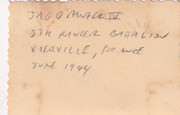 JAGDPANZER IV
5TH RANGER BATTALION
VIERVILLE, FRANCE
JUNE 1944